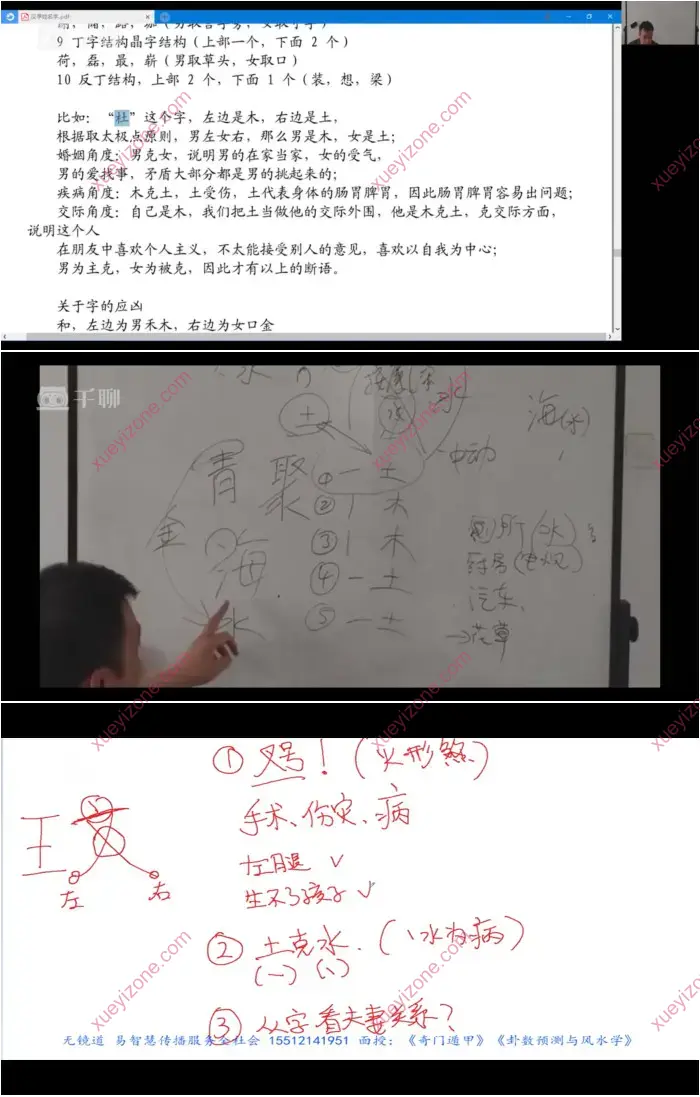 9 丁字结构晶字结构（上部一个，下面 2 个）
荷，磊，最，崭（男取草头，女取口）
10 反丁结构，上部 2 个，下面 1 个（装，想，梁）
比如：“杜”这个字，左边是木，右边是土，
根据取太极点原则，男左女右，那么男是木，女是土；
婚姻角度：男克女，说明男的在家当家，女的受气，
男的爱找事，矛盾大部分都是男的挑起来的；
疾病角度：木克土，土受伤，土代表身体的肠胃脾胃，因此肠胃脾胃容易出问题；
交际角度：自己是木，我们把土当做他的交际外围，他是木克土，克交际方面，
说明这个人
在朋友中喜欢个人主义，不太能接受别人的意见，喜欢以自我为中心；
男为主克，女为被克，因此才有以上的断语。
关于字的应凶
和，左边为男禾木，右边为女口金
千聊
水
土
水
海(水)
青 聚
①一 土
中动
②丨 木
金
③丨 木
厕所(水)
海
④一 土
药店
汽车
水
⑤一 土
→花草
① 叉号！(火形煞)
手术、伤灾、病
左腿 ✓
生不了孩子 ✓
王
左
右
② 土克水.(丶水为病)
(一) (丶)
③ 从字看夫妻关系？
无镜道 易智慧传播服务全社会 15512141951 面授：《奇门遁甲》《卦数预测与风水学》
xueyizone.com
xueyizone.com
xueyizone.com
xueyizone.com
xueyizone.com
xueyizone.com
xueyizone.com
xueyizone.com
xueyizone.com